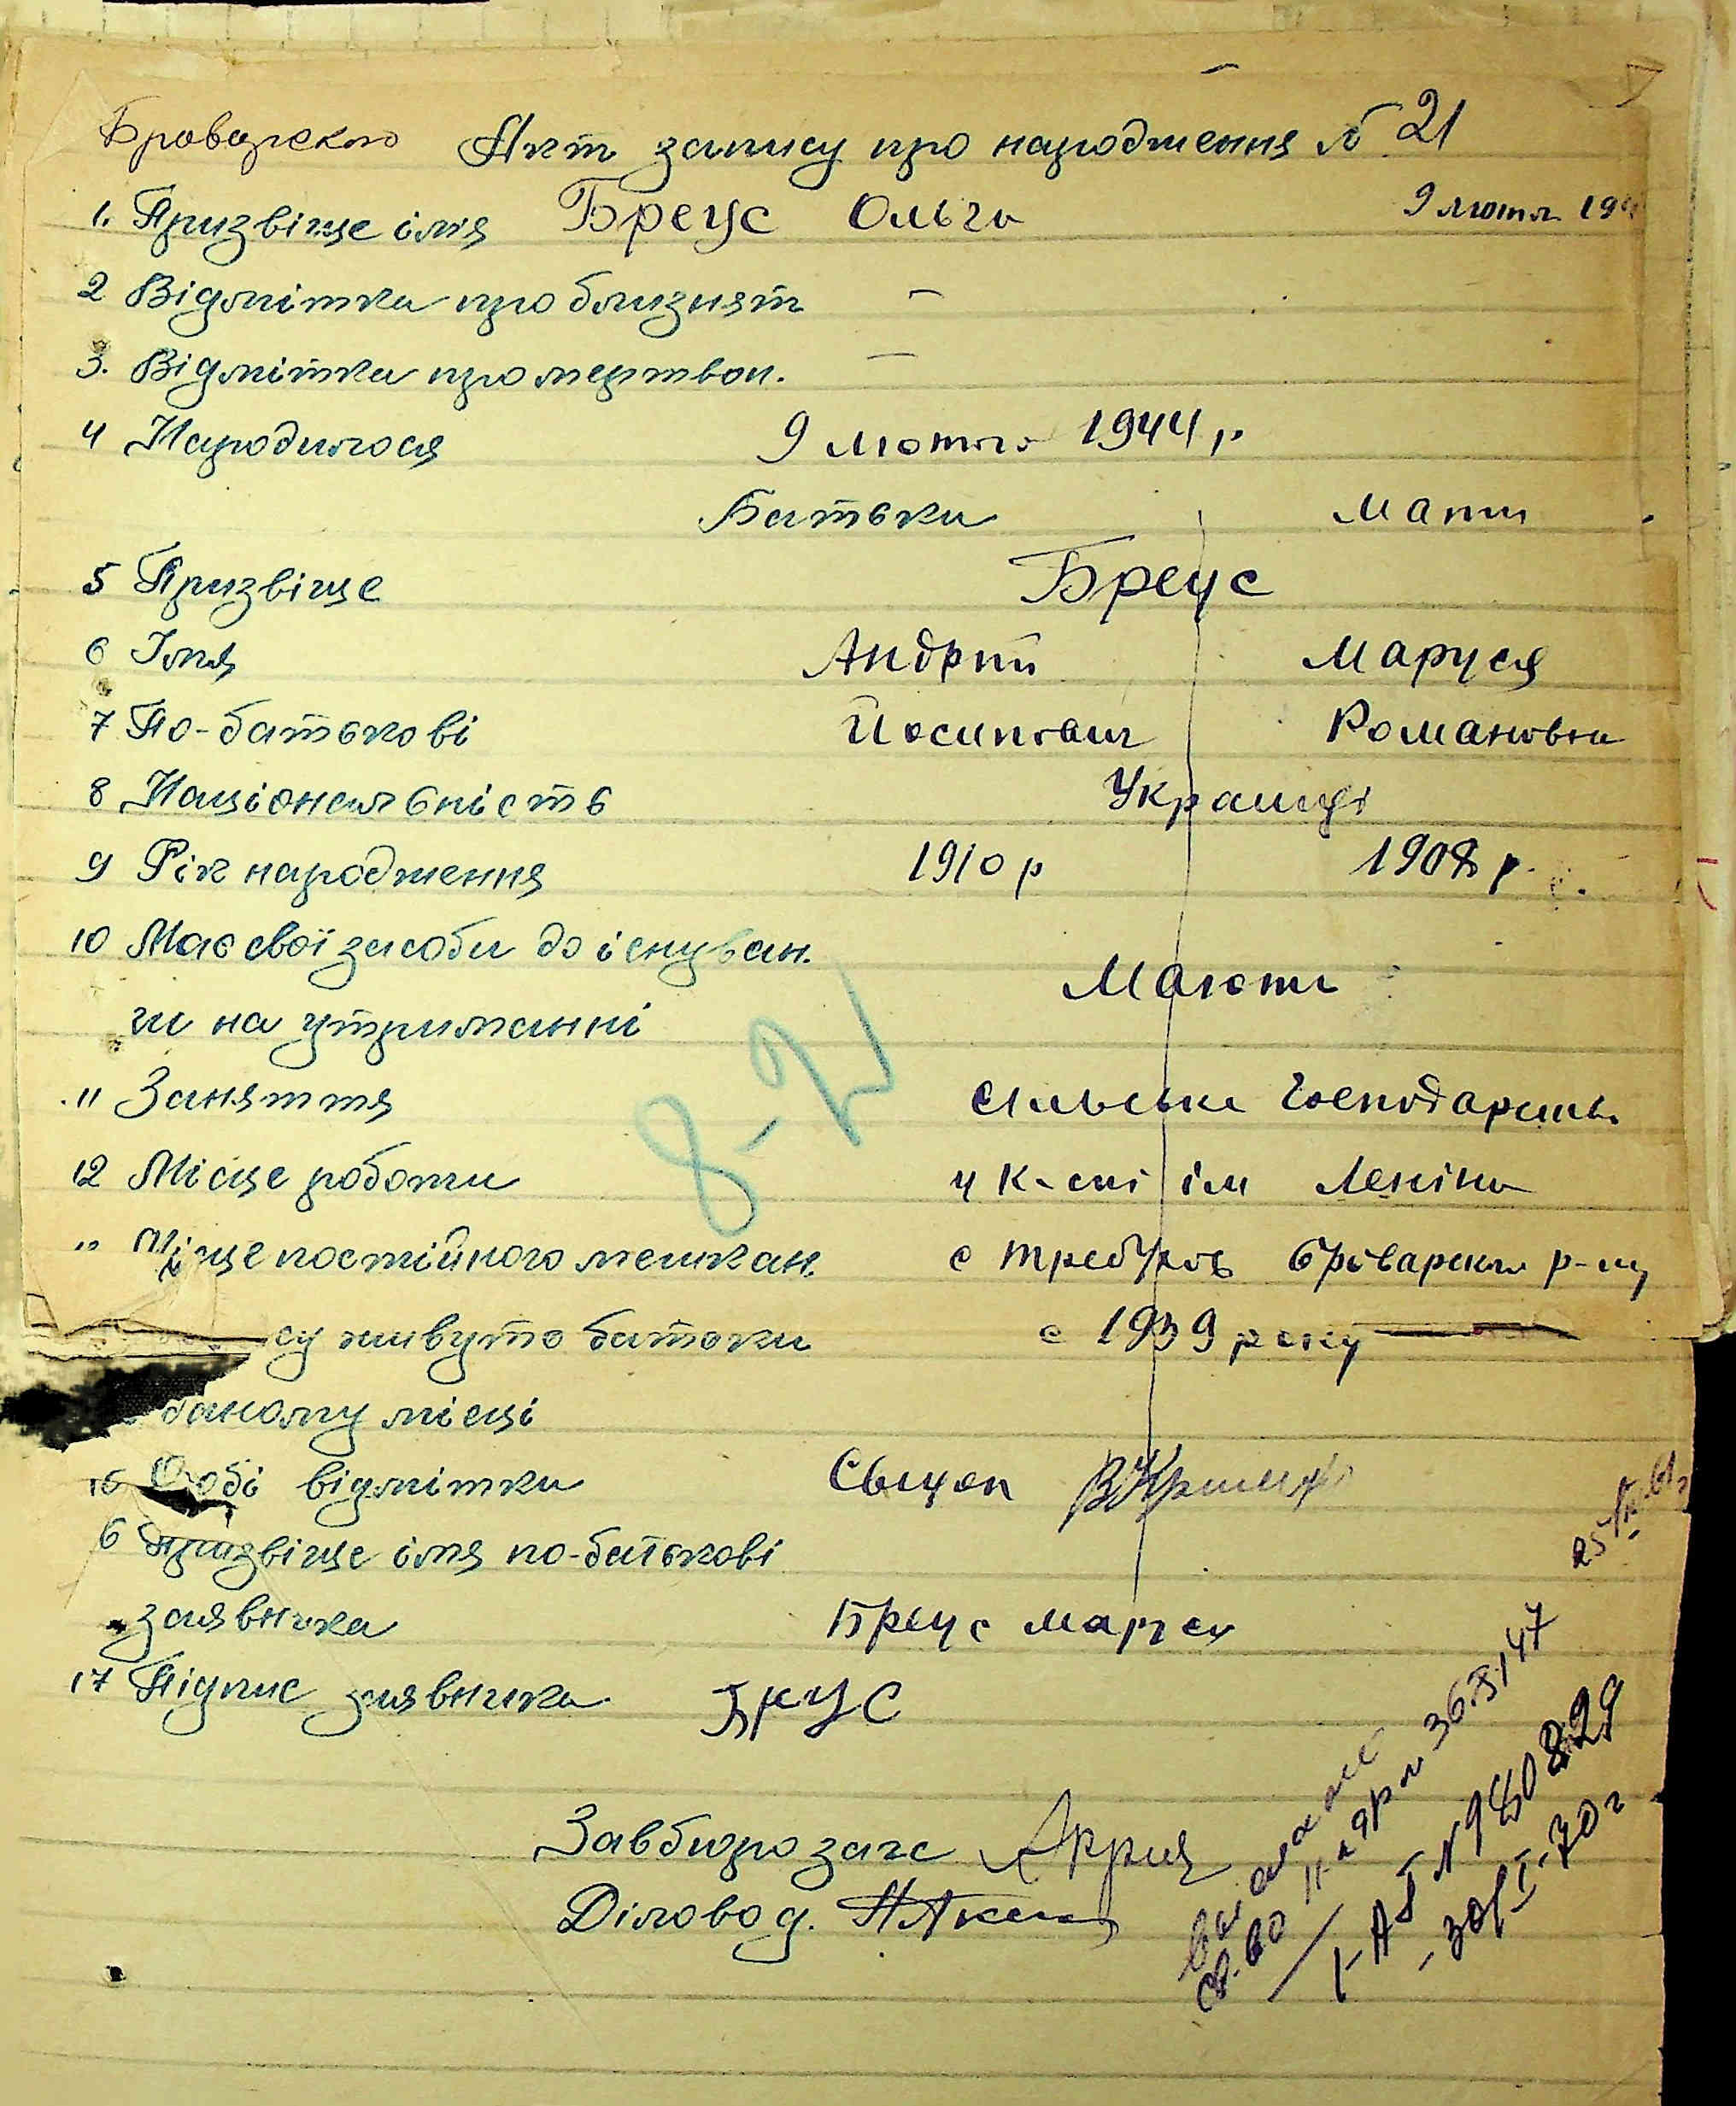 Броварского Акт запису про народження № 21
1. Прізвіще імя Бреус Ольга 9 лютого 194
2 Відмітка про близнят —
3. Відмітка про мертвон. —
4 Народилося 9 лютого 1944 р
Батьки Мати
5 Прізвіще Бреус
6 Імя Андрій Маруся
7 По-батькові Йосипович Романовна
8 Національність Українці
9 Рік народження 1910 р 1908 р.
10 Має свої засоби до існуван. Мають
чи на утриманні
8-2
11 Заняття Сільське Господарств
12 Місце роботи у к-спі ім Леніна
" Місце постійного мешкан. с Требухов Броварского р-ну
су живуть батьки с 1939 року —
даному місці
15 Особі відмітки
6 Прізвіще імя по-батькові
заявника Бреус Маруся
17 Підпис заявника БРУС
Завбюро загс
Діловод.
св-во
I-АБ N 940829